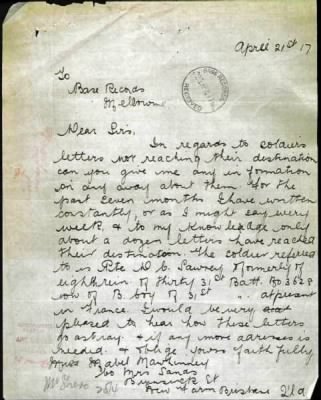 April 21st 17
To
Base Records
Melbourne
Dear Sirs.
In regards to soldiers
letters not reaching their destination
can you give me any in formation
in any away about them for the
past seven months I have written
constantly, or as I might say every
week, & to my knowledge only
about a dozen letters have reached
their destination. The soldier refered
to is Pte D C Lawney formerly of
eighthrein of thirty 31st Batt. No 3628
now of B. Coy of 31st " at present
in France. I would be very
pleased to hear how these letters
go astray. & if any more adress is
needed. & oblige yours faithfully
Miss Mabel
Co Mrs Sands
Brunswick St
New Farm Brisbane Qld